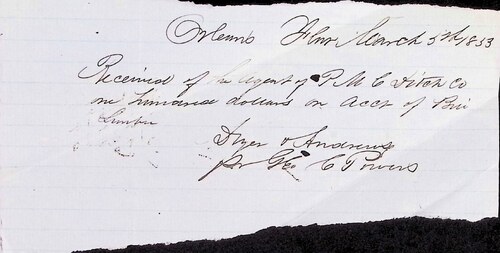 Orleans Flat March 5th 1853
Received of the Agent of P M C Ditch Co
one hundred dollars on Acct of
Lumber
Dyer & Andrews
pr Geo C Powers